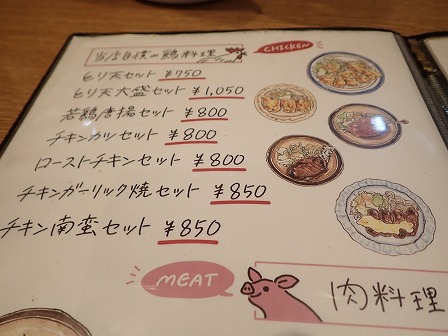 当店自慢の鶏料理
CHICKEN
とり天セット ¥750
とり天大盛セット ¥1,050
若鶏唐揚セット ¥800
チキンカツセット ¥800
ローストチキンセット ¥800
チキンガーリック焼セット ¥850
チキン南蛮セット ¥850
MEAT
肉料理